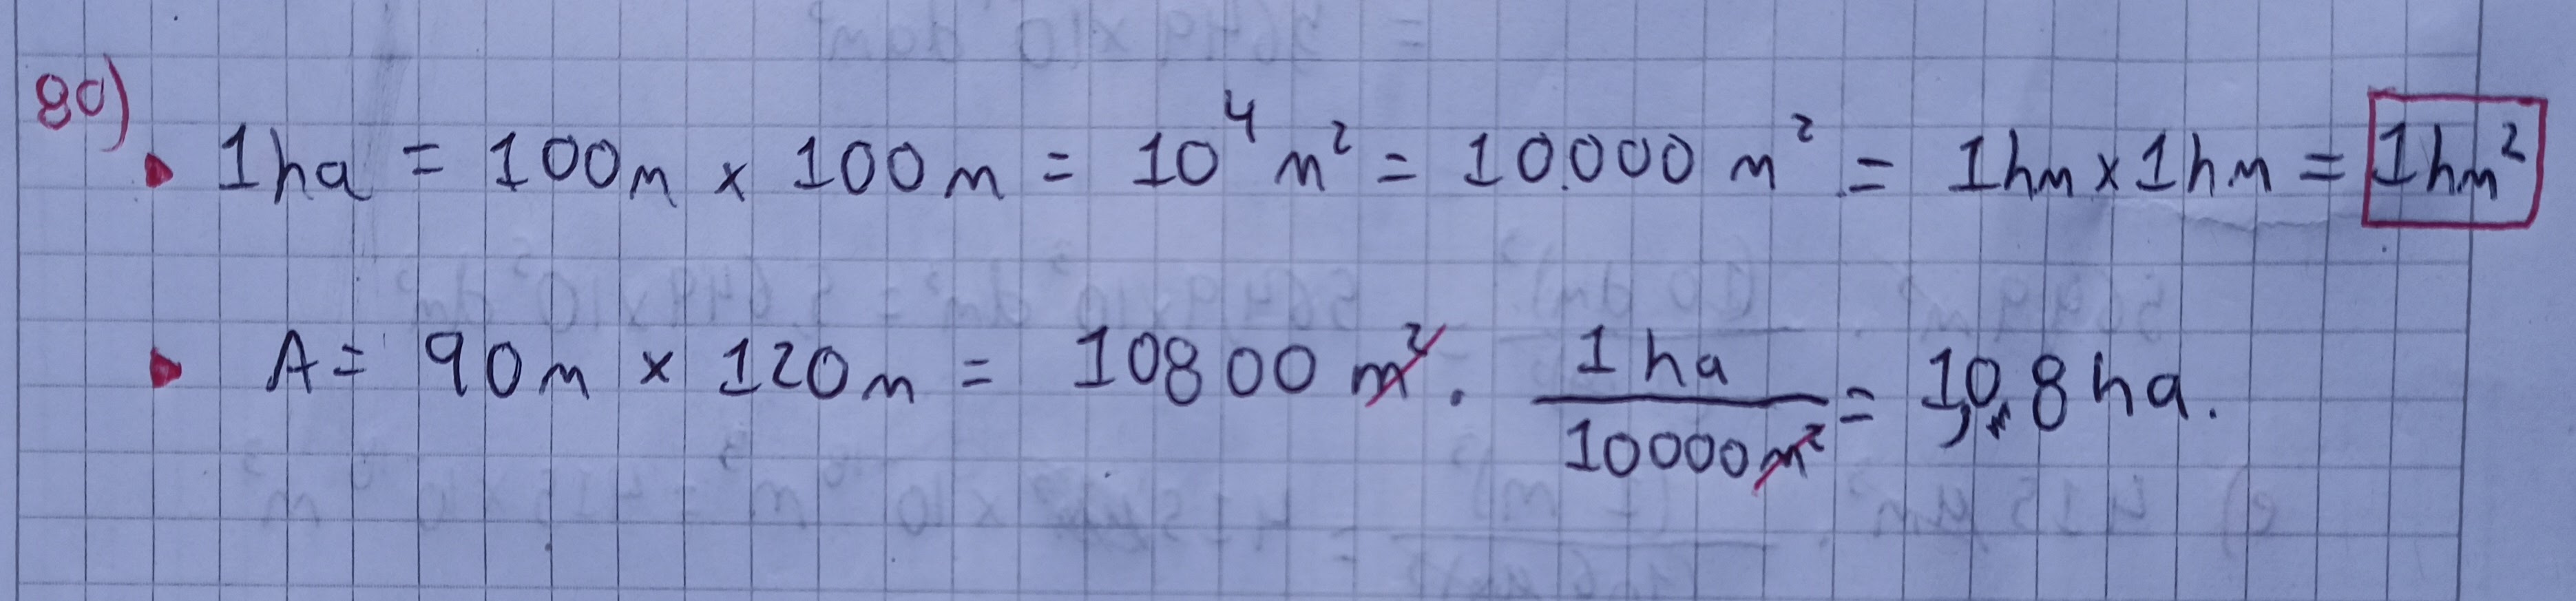 80)
▸ 1ha = 100m × 100m = 10⁴ m² = 10.000 m² = 1hm × 1hm = 1hm²
▸ A = 90m × 120m = 10800 m² · 1 ha / 10000 m² = 1,08 ha.